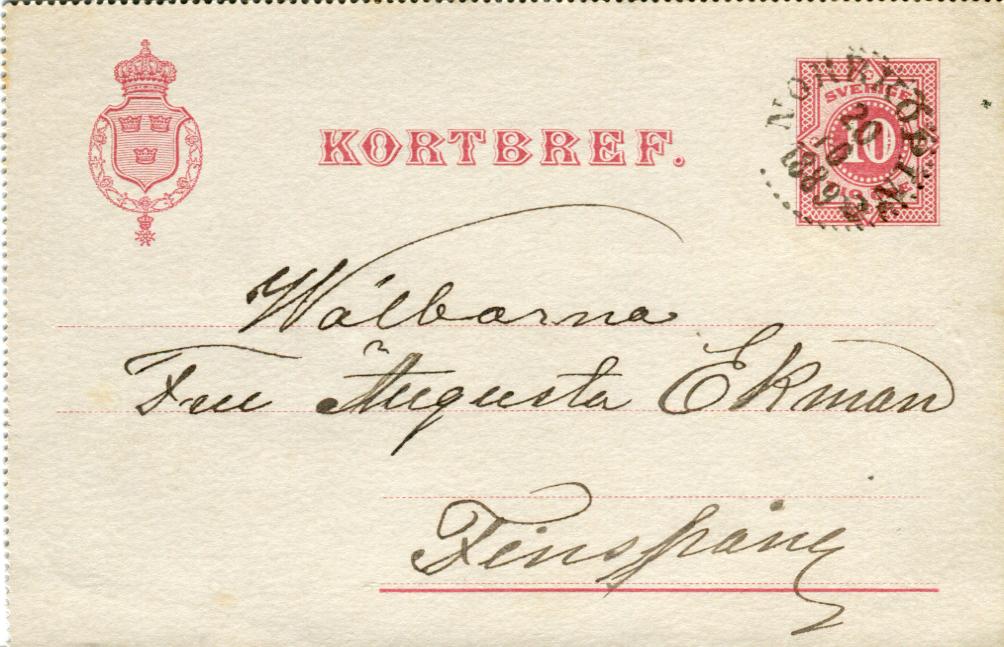 KORTBREF.
SVERIGE
10
NORRKÖPING
20
10
1889
Wälborna
Fru Augusta Ekman
Finspång